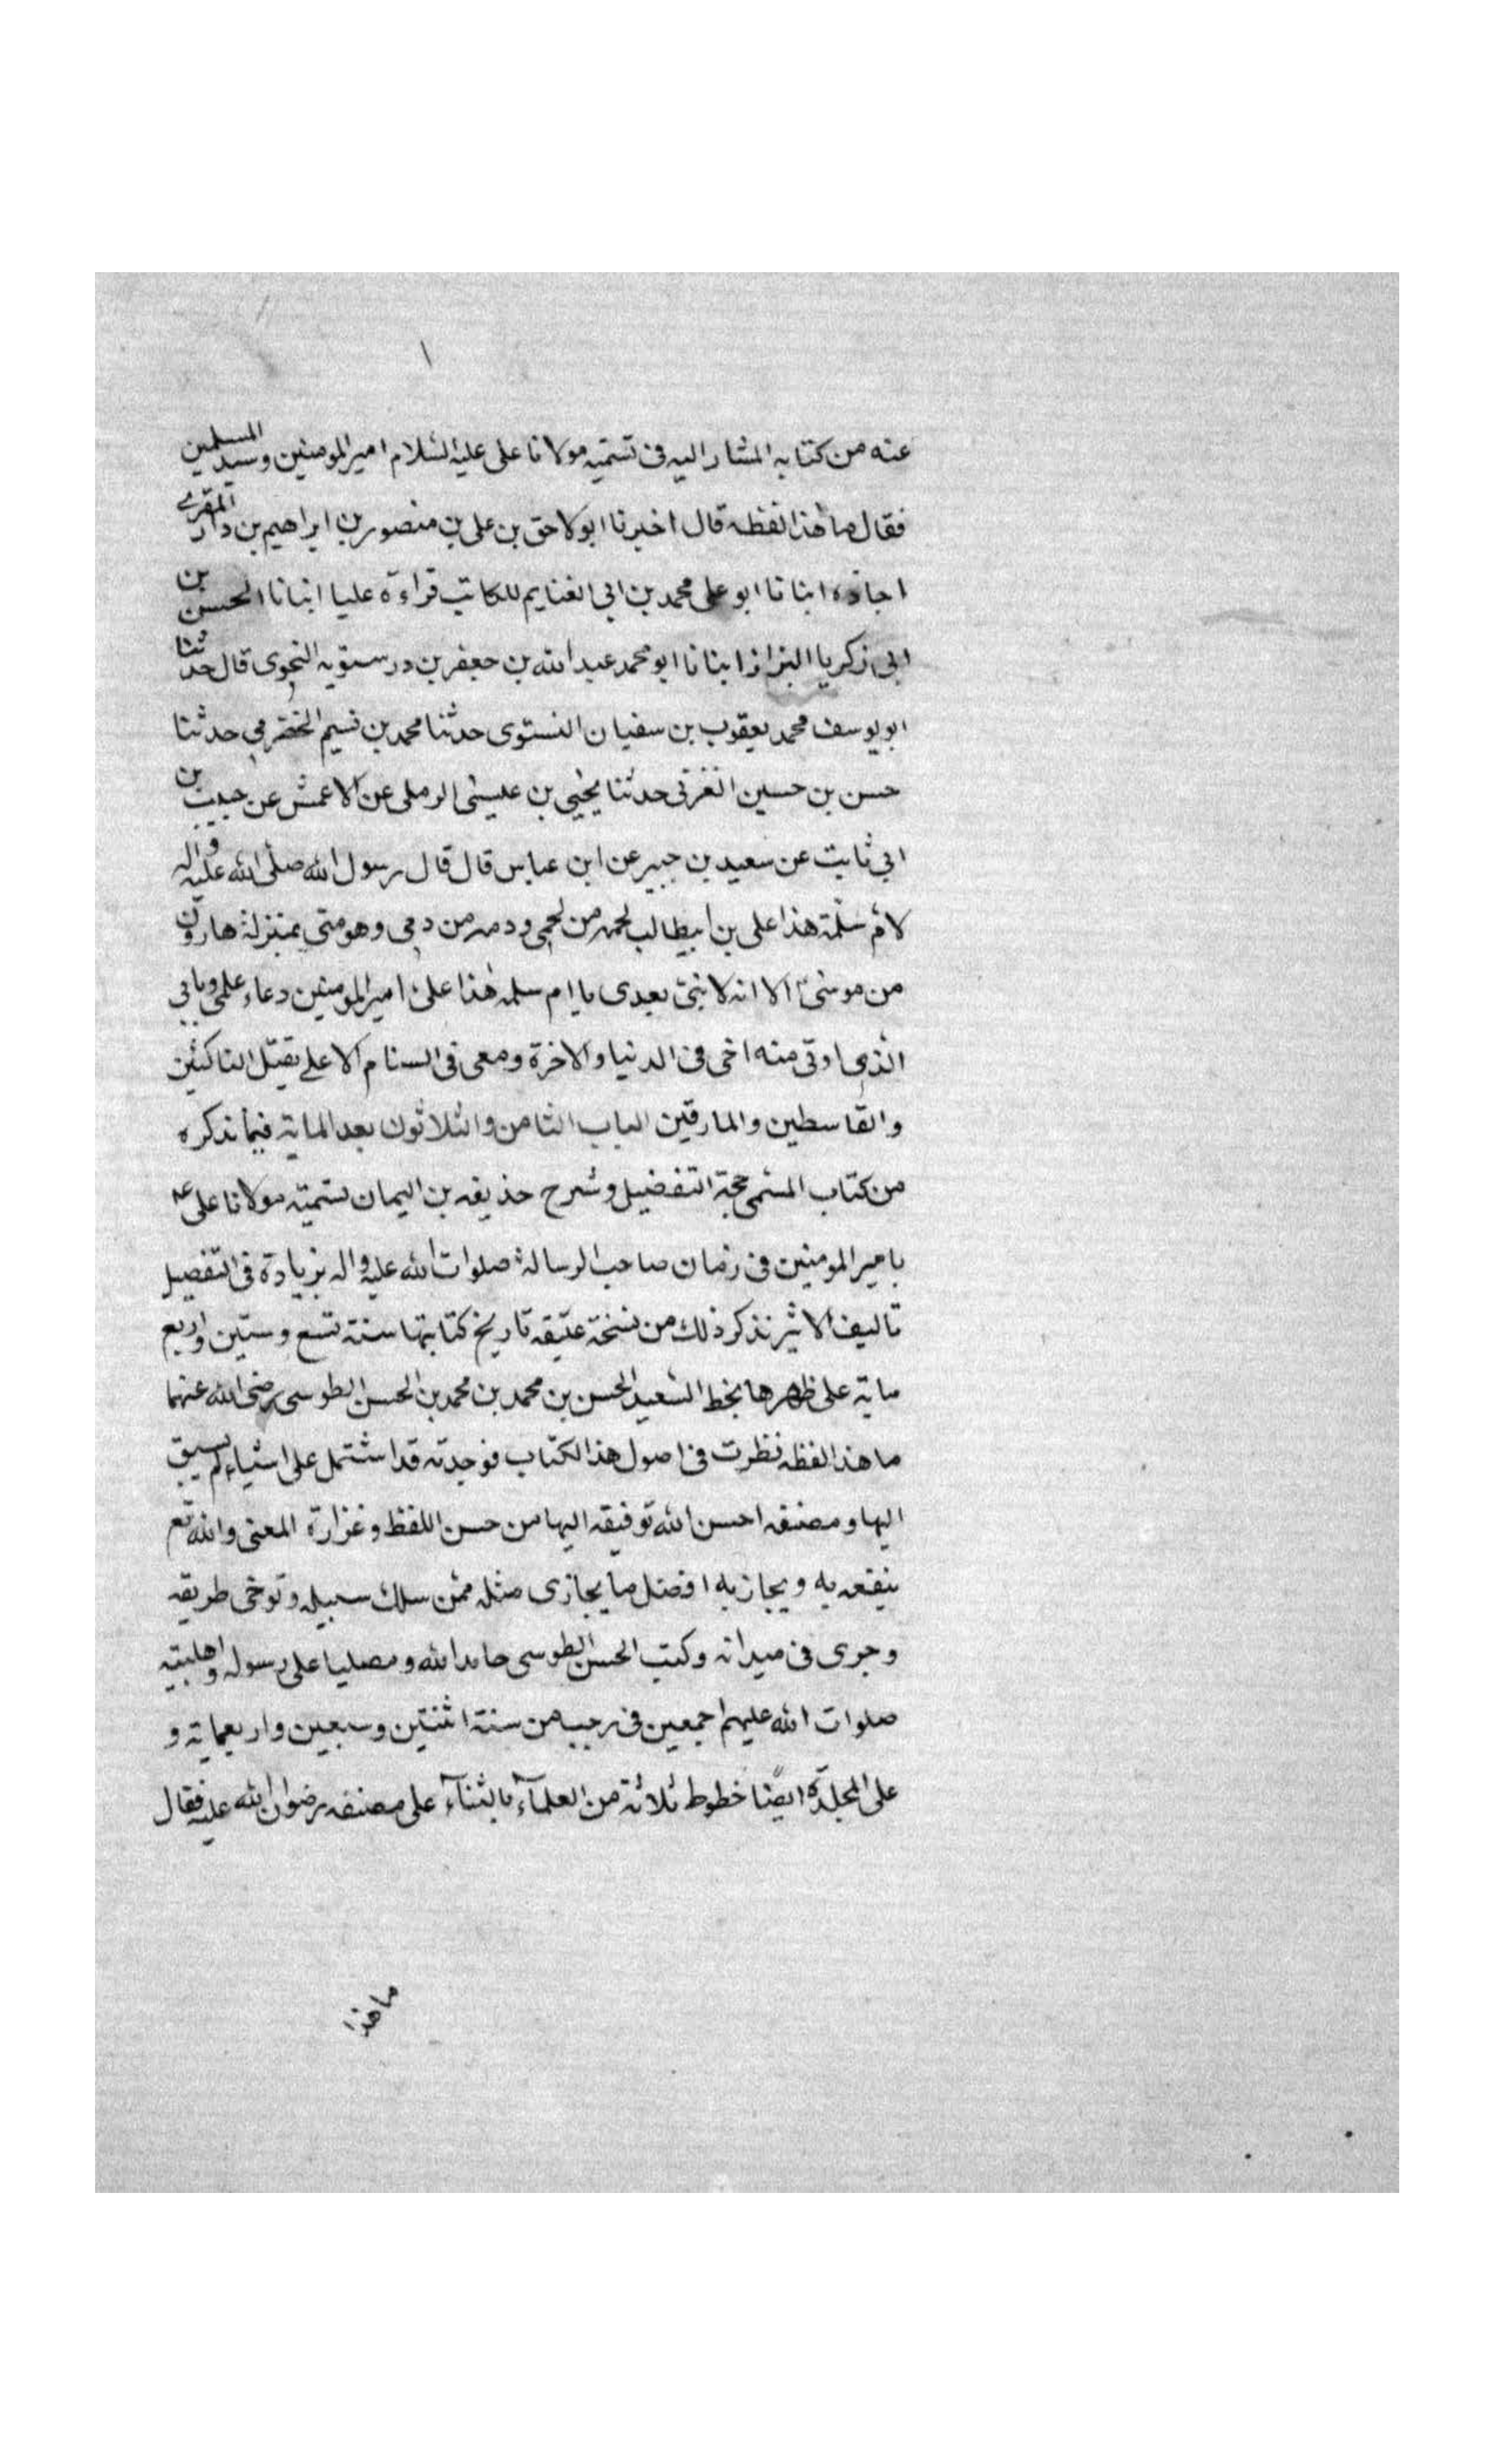 ١
عنه من كتابه المشار اليه فى تسميه مولانا على عليه السلام امير المومنين وسيد المسلمين
فقال ما هذا لفظه قال اخبرنا ابو لاحق بن على بن منصور بن ابراهيم بن دار المقرى
اجازه انبانا ابو على محمد بن ابى الغنايم للكاتب قراءة عليا انبانا الحسن بن
ابى زكريا البزاز انبانا ابو محمد عبد الله بن جعفر بن درستويه النحوى قال حدثنا
ابو يوسف محمد يعقوب بن سفيان النستوى حدثنا محمد بن تسيم الحضرمى حدثنا
حسن بن حسين الغرنى حدثنا يحيى بن عيسى الرملى عن الاعمش عن حبيب بن
ابي ثابت عن سعيد بن جبير عن ابن عباس قال قال رسول الله صلى الله عليه واله
لام سلمة هذا على بن ابيطالب لحمه من لحمى ودمه من دمى وهو منى بمنزلة هارون
من موسى الا انه لا نبى بعدى يا ام سلمه هذا على امير المومنين دعاء علمى وبابى
الذى اوتى منه اخى فى الدنيا والاخرة ومعى فى السنام الاعلے يقتل الناكثين
والقاسطين والمارقين الباب الثامن والثلاثون بعد الماية فيما نذكره
من كتاب المسمى حجة التفضيل وشرح حذيفه بن اليمان تسميته مولانا على عه
بامير المومنين فى زمان صاحب الرسالة صلوات الله عليه واله بزيادة فى التفصيل
تاليف الاثير نذكر ذلك من نسخة عتيقه تاريخ كتابتها سنة تسع وستين واربع
ماية على ظهرها بخط السعيد الحسن بن محمد بن محمد بن الحسن الطوسى رضى الله عنهما
ما هذا لفظه نظرت فى اصول هذا الكتاب فوجدته قد اشتمل على اشياء لم يسبق
اليها ومصنفه احسن الله توفيقه اليها من حسن اللفظ وغزارة المعنى والله تع
ينفعه به ويجاز به افضل ما يجازى مثله ممن سلك سبيله وتوخى طريقه
وجرى فى ميدانه وكتب الحسن الطوسى حامدا لله ومصليا على رسوله واهلبيته
صلوات الله عليهم اجمعين فى رجب من سنة اثنتين وسبعين واربعماية و
على المجلدة ايضا خطوط ثلاثة من العلمآء بالثنآء على مصنفه رضوان الله عليه فقال
ما هذا